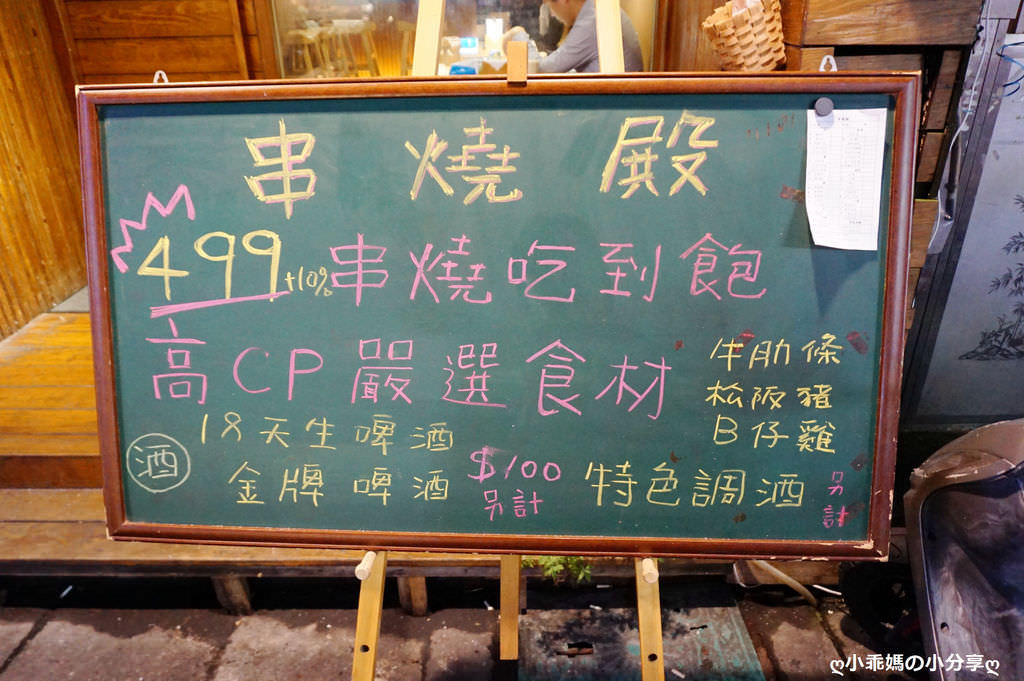 串燒殿
499+10% 串燒吃到飽
高CP嚴選食材
牛肋條
松阪豬
B仔雞
酒
18天生啤酒
金牌啤酒
$100
另計
特色調酒
另計
ღ小乖媽の小分享ღ